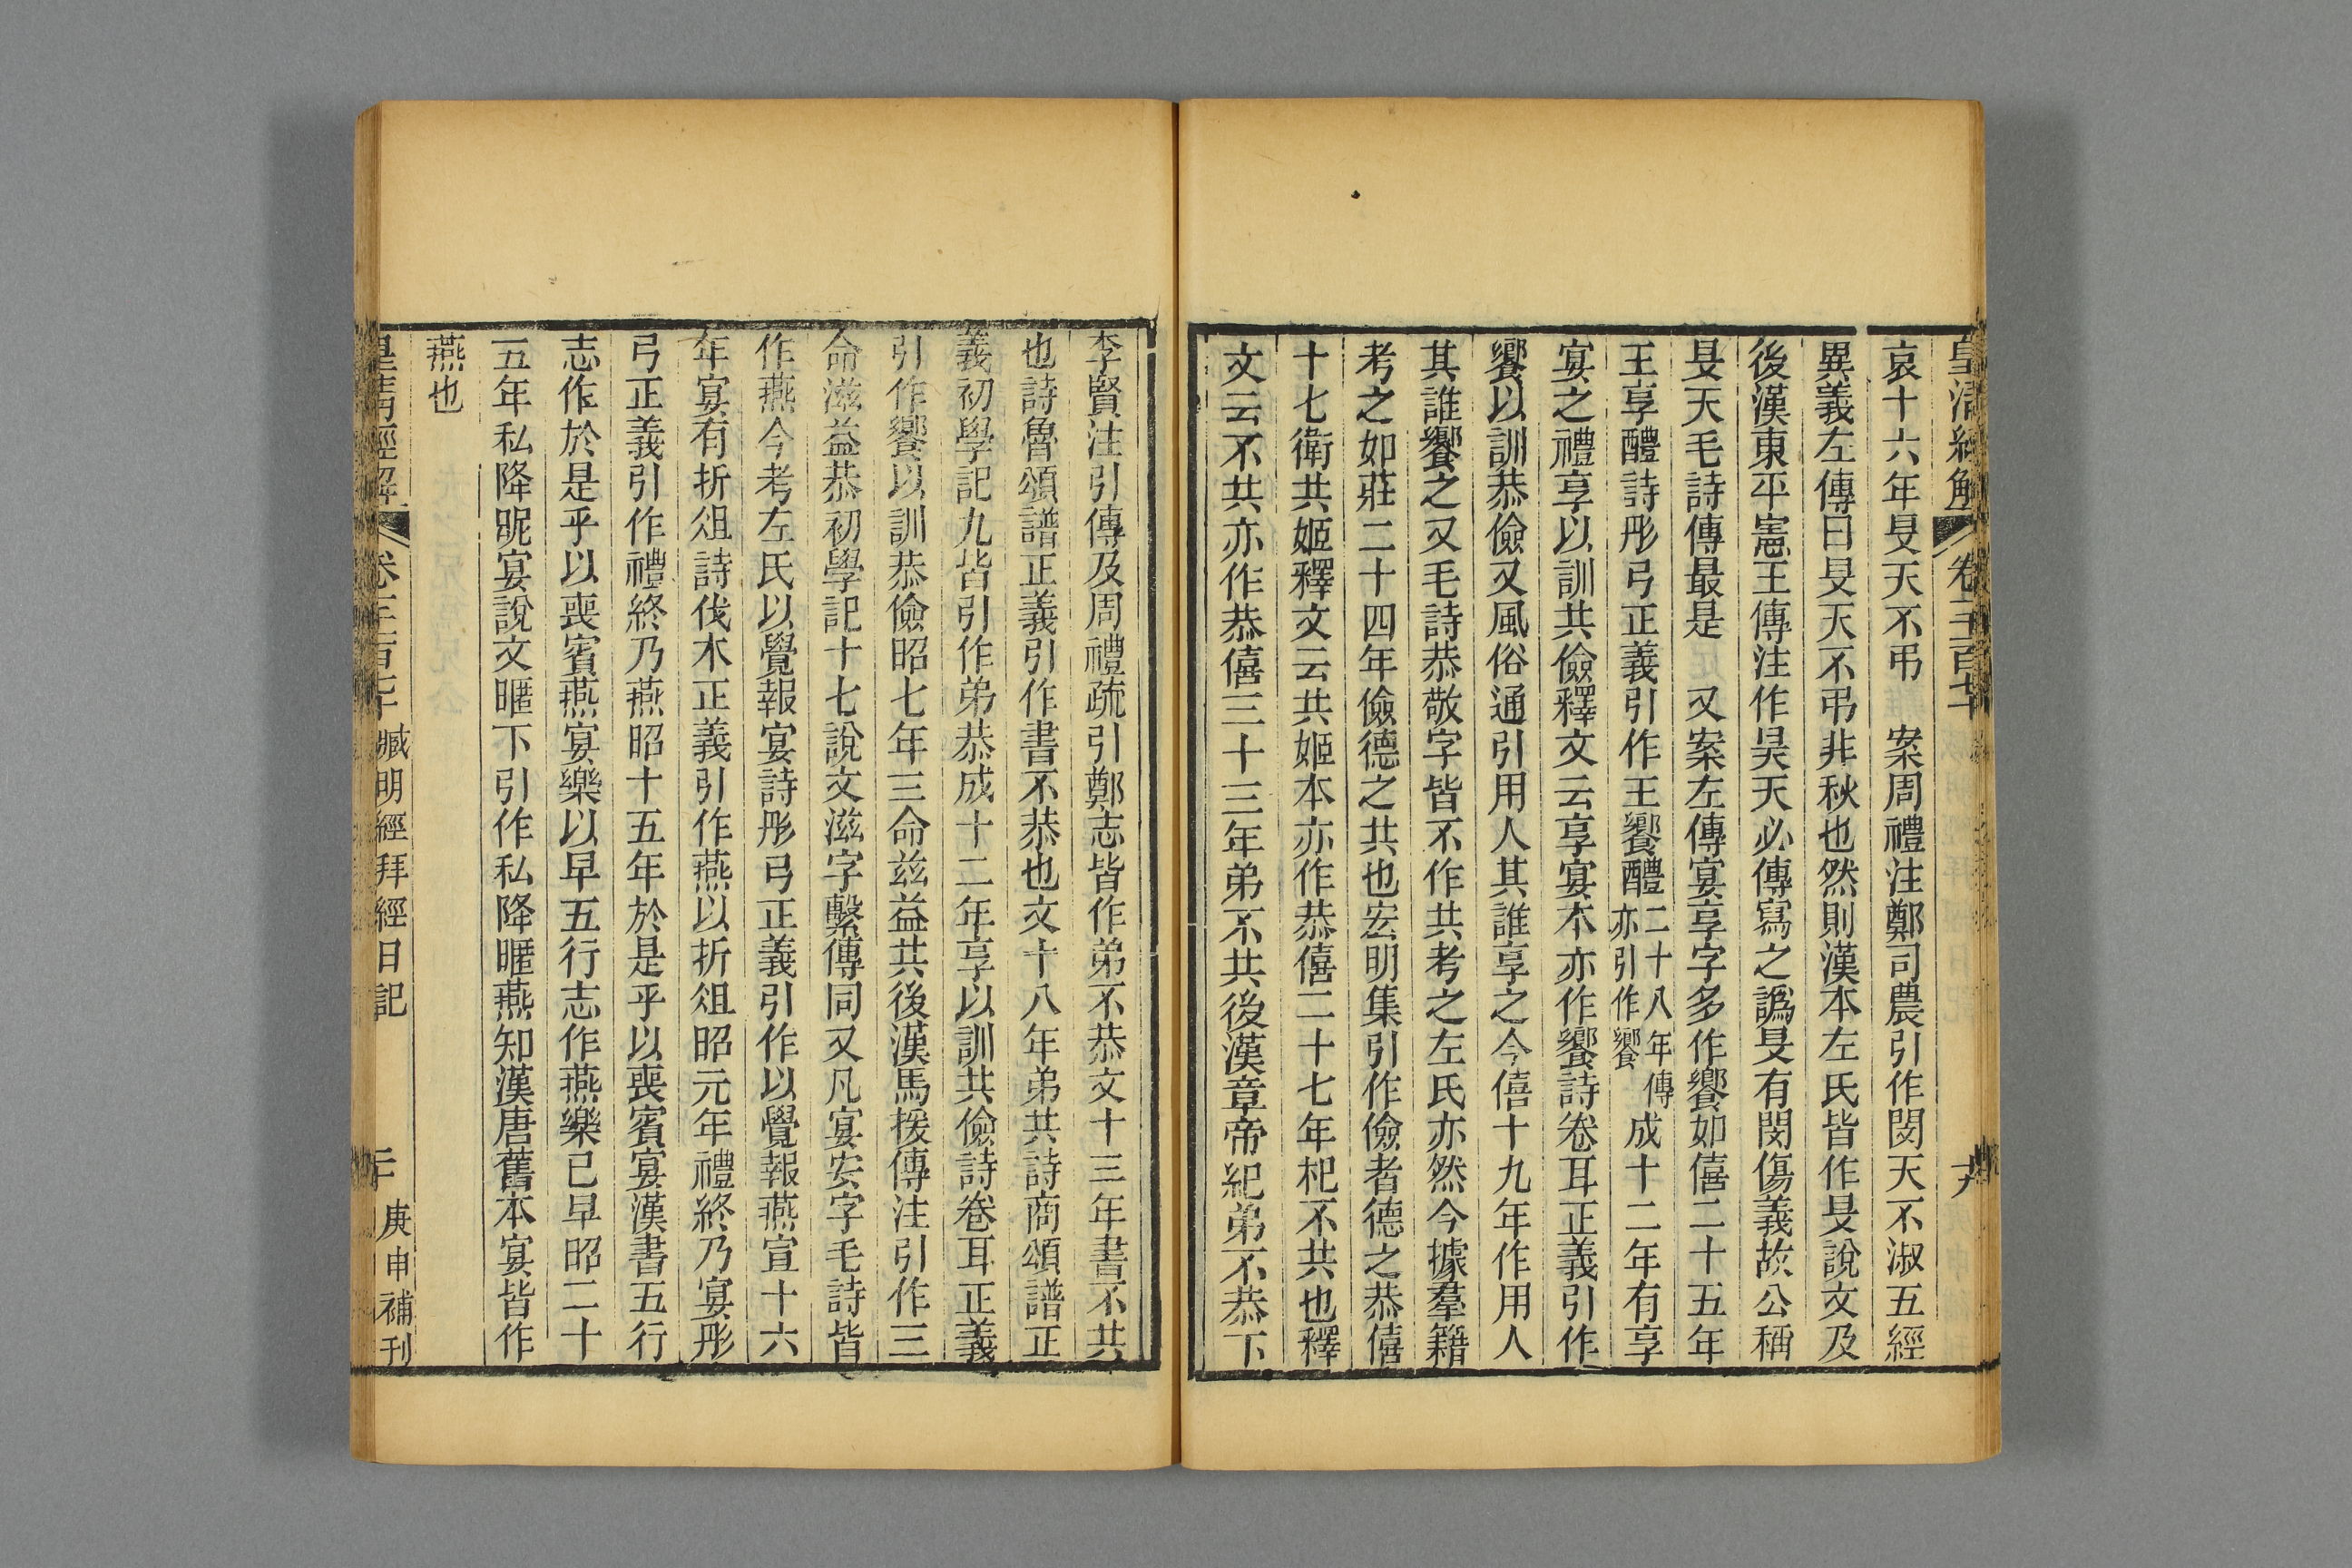 皇清經解 卷
哀十六年旻天不弔 案周禮注鄭司農引作閔天不淑五經
異義左傳曰旻天不弔非秋也然則漢本左氏皆作旻說文及
後漢東平憲王傳注作昊天必傳寫之譌旻有閔傷義故公稱
旻天毛詩傳最是 又案左傳宴享字多作饗如僖二十五年
王享醴詩彤弓正義引作王饗醴二十八年傳亦引作饗成十二年有享
宴之禮享以訓共儉釋文云享宴本亦作饗詩卷耳正義引作
饗以訓恭儉又風俗通引用人其誰享之今僖十九年作用人
其誰饗之又毛詩恭敬字皆不作共考之左氏亦然今據羣籍
考之如莊二十四年儉德之共也宏明集引作儉者德之恭僖
十七衛共姬釋文云共姬本亦作恭僖二十七年杞不共也釋
文云不共亦作恭僖三十三年弟不共後漢章帝紀弟不恭下
李賢注引傳及周禮疏引鄭志皆作弟不恭文十三年書不共
也詩魯頌譜正義引作書不恭也文十八年弟共詩商頌譜正
義初學記九皆引作弟恭成十二年享以訓共儉詩卷耳正義
引作饗以訓恭儉昭七年三命兹益共後漢馬援傳注引作三
命滋益恭初學記十七說文滋字繫傳同又凡宴安字毛詩皆
作燕今考左氏以覺報宴詩彤弓正義引作以覺報燕宣十六
年宴有折俎詩伐木正義引作燕以折俎昭元年禮終乃宴彤
弓正義引作禮終乃燕昭十五年於是乎以喪賓宴漢書五行
志作於是乎以喪賓燕宴樂以早五行志作燕樂已早昭二十
五年私降昵宴說文暱下引作私降暱燕知漢唐舊本宴皆作
燕也
皇清經解 卷 臧明經拜經日記 庚申補刊